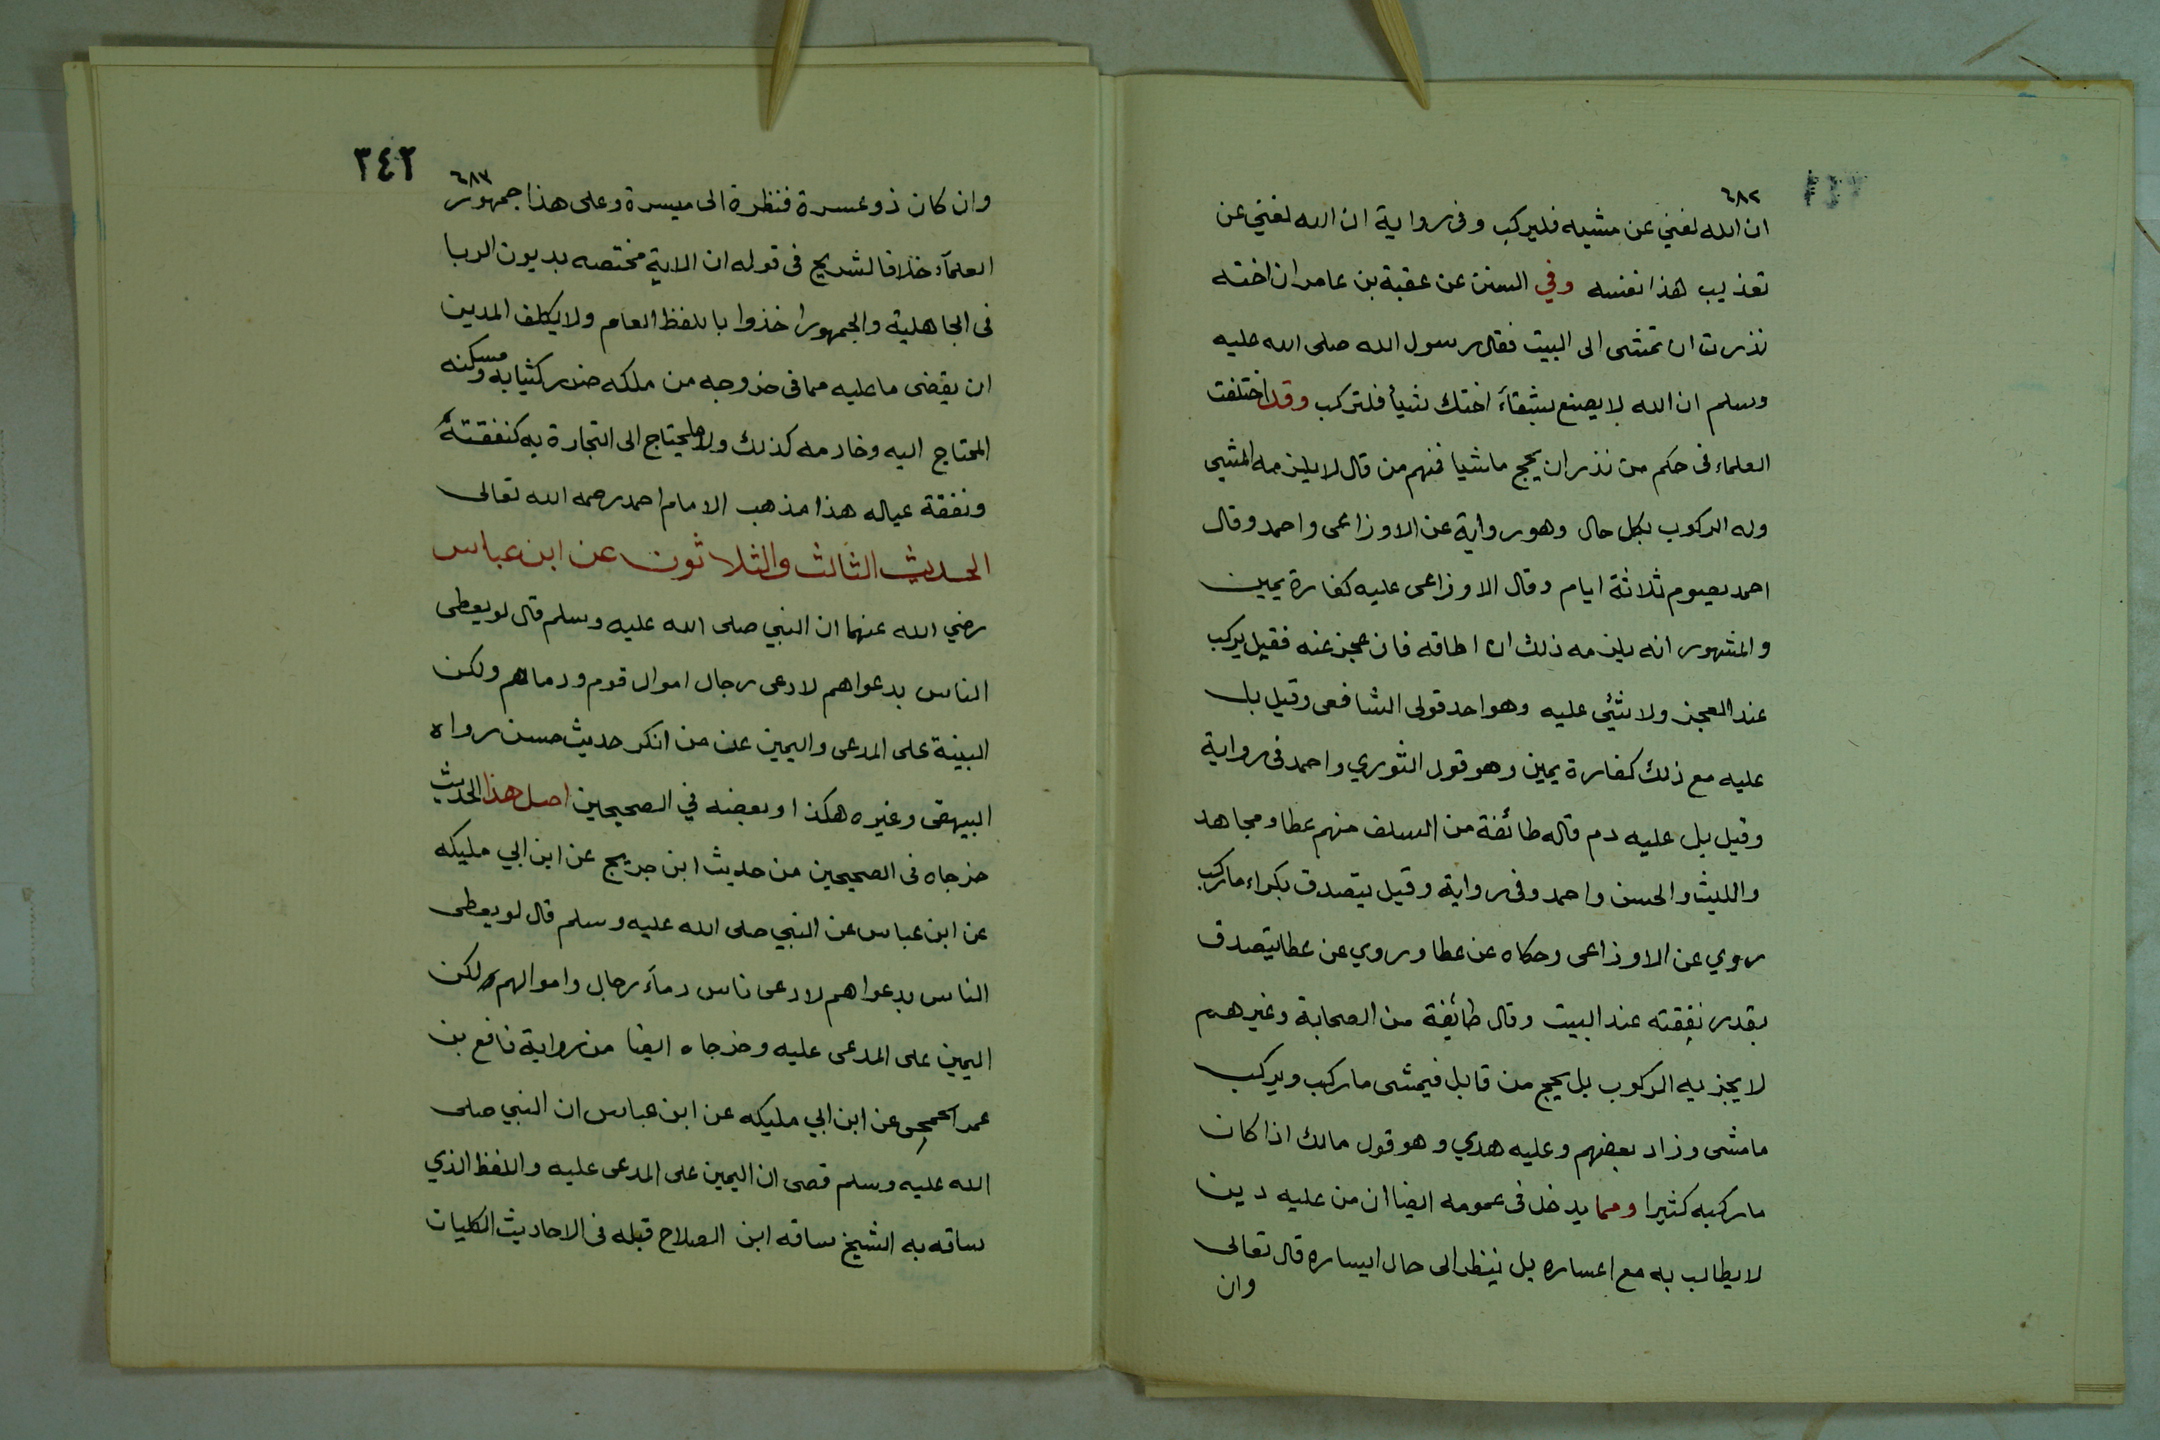 ٦٨٢
ان الله لغني عن مشيه فليركب وفي رواية ان الله لغني عن
تعذيب هذا نفسه وفي السنن عن عقبة بن عامر ان اخته
نذرت ان تمشى الى البيت فقال رسول الله صلى الله عليه
وسلم ان الله لا يصنع بشقاء اختك شيأ فلتركب وقد اختلفت
العلماء فى حكم من نذر ان يحج ماشيا فنهم من قال لا يلزمه المشي
وله الركوب بكل حال وهو رواية عن الاوزاعى واحمد وقال
احمد يصوم ثلاثة ايام وقال الاوزاعى عليه كفارة يمين
والمشهور انه يلزمه ذلك ان اطاقه فان عجز عنه فقيل يركب
عند العجز ولا شئي عليه وهو احد قولى الشافعى وقيل بل
عليه مع ذلك كفارة يمين وهو قول الثوري واحمد فى رواية
وقيل بل عليه دم قاله طائفة من السلف منهم عطا ومجاهد
والليث والحسن واحمد وفى رواية وقيل يتصدق بكراء ماركب
روي عن الاوزاعى وحكاه عن عطا وروي عن عطا يتصدق
بقدر نفقته عند البيت وقال طائفة من الصحابة وغيرهم
لا يجزيه الركوب بل يحج من قابل فيمشى ماركب ويركب
مامشى وزاد بعضهم وعليه هدي وهو قول مالك اذا كان
ماركبه كثيرا ومما يدخل فى عمومه ايضا ان من عليه دين
لا يطالب به مع اعساره بل ينظر الى حال ايساره قال تعالى
وان
٣٤٢
٦٨٧
وان كان ذو عسرة فنظرة الى ميسرة وعلى هذا جمهور
العلمآء خلافا لشريح فى قوله ان الاية مختصه بديون الربا
فى الجاهلية والجمهور اخذوا باللفظ العام ولا يكلف المدين
ان يقضى ما عليه مما فى خروجه من ملكه ضرر كثيابه ومسكنه
المحتاج اليه وخادمه كذلك ولا ما يحتاج الى التجارة به كنفقته
ونفقة عياله هذا مذهب الامام احمد رحمه الله تعالى
الحديث الثالث والثلاثون عن ابن عباس
رضي الله عنهما ان النبي صلى الله عليه وسلم قال لو يعطى
الناس بدعواهم لادعى رجال اموال قوم ودماهم ولكن
البينة على المدعى واليمين على من انكر حديث حسن رواه
البيهقى وغيره هكذا وبعضه في الصحيحين اصل هذا الحديث
خرجاه فى الصحيحين من حديث ابن جريج عن ابن ابي مليكه
عن ابن عباس عن النبي صلى الله عليه وسلم قال لو يعطى
الناس بدعواهم لادعى ناس دمآء رجال واموالهم ولكن
اليمين على المدعى عليه وخرجاه ايضا من رواية نافع بن
عمر الجمحي عن ابن ابي مليكه عن ابن عباس ان النبي صلى
الله عليه وسلم قضى ان اليمين على المدعى عليه واللفظ الذي
ساقه به الشيخ ساقه ابن الصلاح قبله فى الاحاديث الكليات